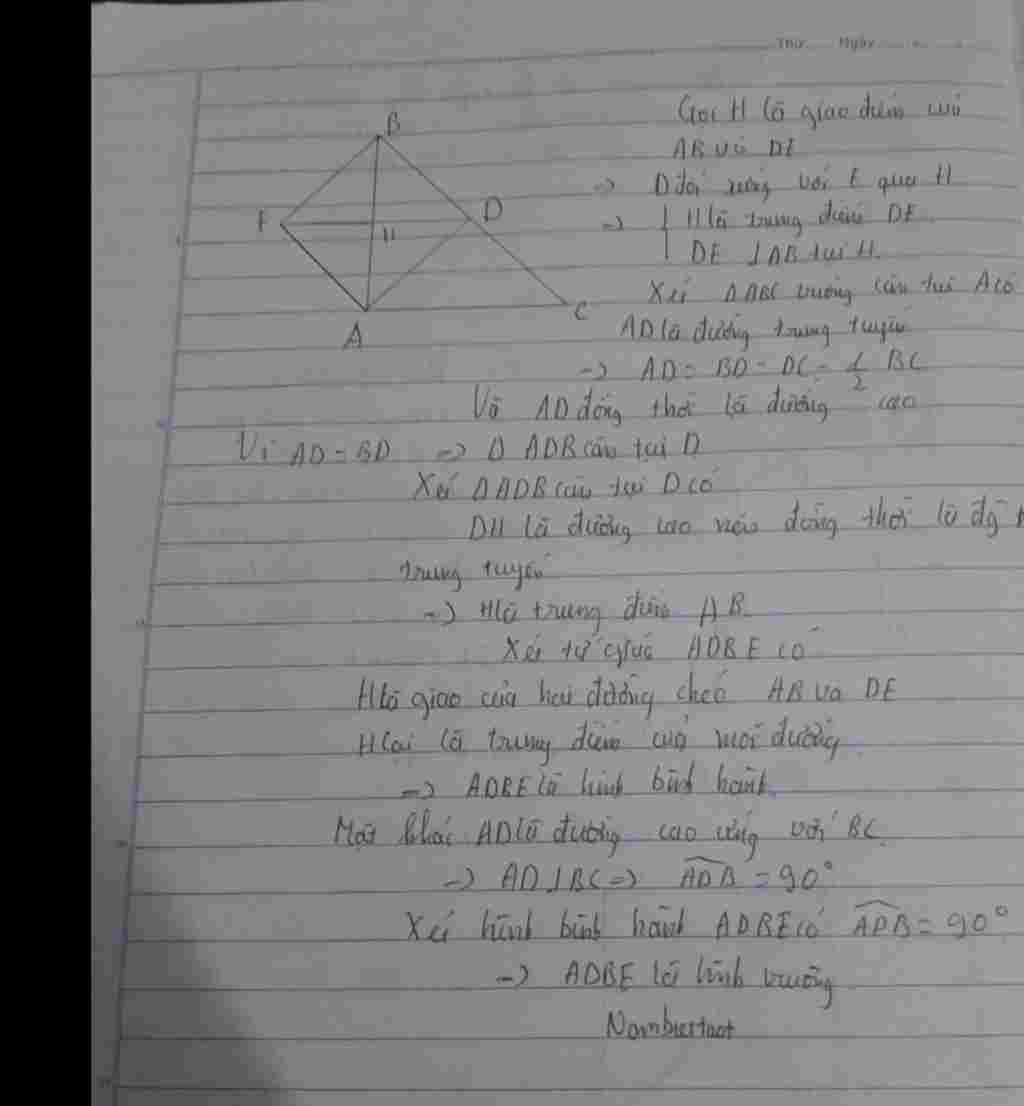 Thứ Ngày
B
E
H
D
A
C
Gọi H là giao điểm của
AB và DE
-> D đối xứng với E qua H
-> { H là trung điểm DE
DE ⊥ AB tại H.
Xét ΔABC vuông cân tại A có
AD là đường trung tuyến
-> AD = BD = DC = 1/2 BC
Và AD đồng thời là đường cao
Vì AD = BD -> Δ ADB cân tại D
Xét ΔADB cân tại D có
DH là đường cao nên đồng thời là đg
trung tuyến
-> H là trung điểm AB.
Xét tứ giác ADBE có
H là giao của hai đường chéo AB và DE
H lại là trung điểm của mỗi đường
-> ADBE là hình bình hành.
Mặt khác AD là đường cao ứng với BC
-> AD ⊥ BC => ADB = 90°
Xét hình bình hành ADBE có ADB = 90°
-> ADBE là hình vuông